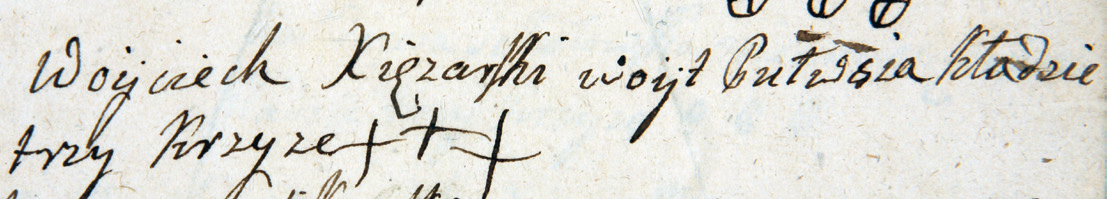 Woyciech Xięzarski woyt Putwsia kładzie
trzy Krzyze + + +